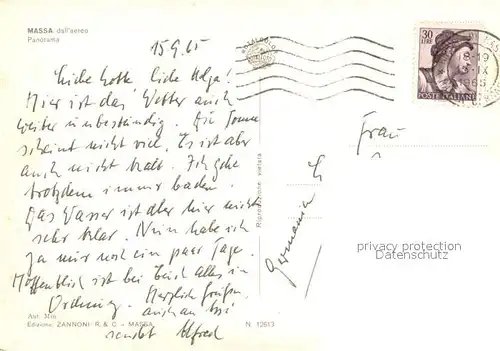 MASSA dall'aereo
Panorama
15.9.65
Liebe Lotte Liebe Helga!
Hier ist das Wetter auch
weiter unbeständig. Die Sonne
scheint nicht viel. Es ist aber
auch nicht kalt. Ich gehe
trotzdem immer baden.
Das Wasser ist aber hier nicht
sehr klar. Nun habe ich
ja nur noch ein paar Tage.
Hoffentlich ist bei Euch alles in
Ordnung. Herzliche Grüße,
auch an
sendet Alfred
Aut. Min.
Edizione ZANNONI R. & C. - MASSA
N. 12613
Riproduzione vietata
30
LIRE
POSTE ITALIANE
Frau
Germania
privacy protection
Datenschutz